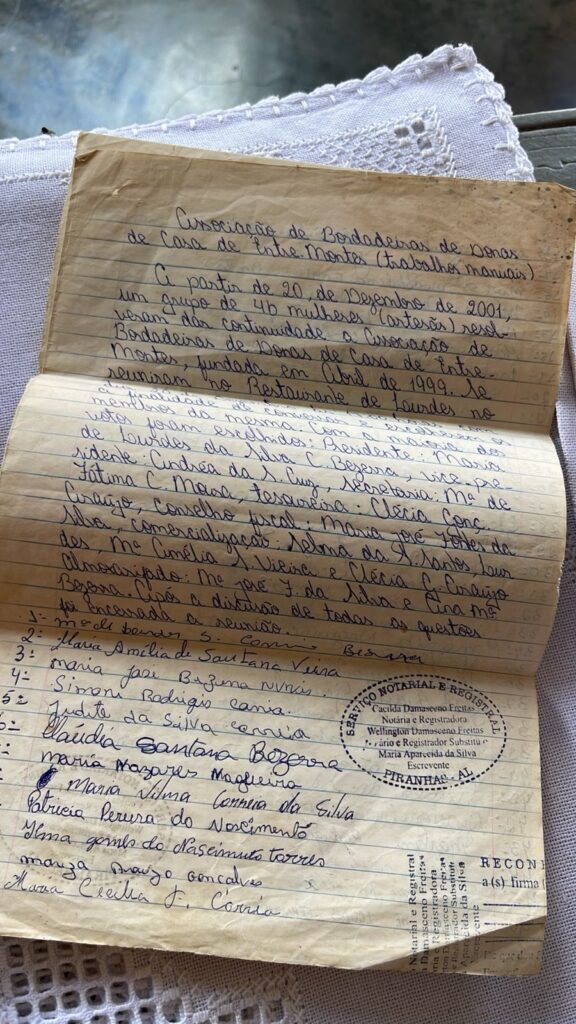 Associação de Bordadeiras de Donas
de Casa de Entre-Montes (trabalhos manuais)
A partir de 20, de Dezembro de 2001,
um grupo de 46 mulheres (artesãs) resol-
veram dás continuidade a Associação de
Bordadeiras de Donas de Casa de Entre-
Montes, fundada em Abril de 1999. Se
reuniram no Restaurante de Lourdes no
membros da mesma. Com a maioria dos
votos foram escolhidos: Presidente: Maria
de Lourdes da Silva C. Bezerra, vice-pre-
sidente: Andréa da S. Cruz, secretaria: Mª de
Fátima C. Moura, tesoureira: Clécia Gonç.
Araújo, conselho fiscal: Maria José Fortes da
Silva, comercialização: Selma da S. Santos, Lour
des, Mª Amélia S. Vieira e Clécia G. Araújo
Almoxarifado: Mª José F. da Silva e Ana Mª
Bezerra. Após a discusão de todas as questões
foi encerrada a reunião.
1= Mª de S. Bezerra
2= Maria Amélia de Santana Vieira
3= maria jose Bezerra nunis
4= Simoni Rodrigio
5= Judite da Silva correia
Claudia Santana Bezerra
maria Mazares
Maria Vilma Correia da Silva
Patricia Pereira do Nascimentô
gomes do Nascimento torres
Araujo goncalves
Maria Cecilia F. Corrêia
SERVIÇO NOTARIAL E REGISTRAL
Cacilda Damasceno Freitas
Notária e Registradora
Wellington Damasceno Freitas
Notário e Registrador Substituto
Maria Aparecida da Silva
Escrevente
PIRANHAS - AL
Notarial e Registral
Damasceno Freitas
e Registradora
Damasceno Freitas
Registrador Substituto
Aparecida da Silva
RECON
a(s) firma